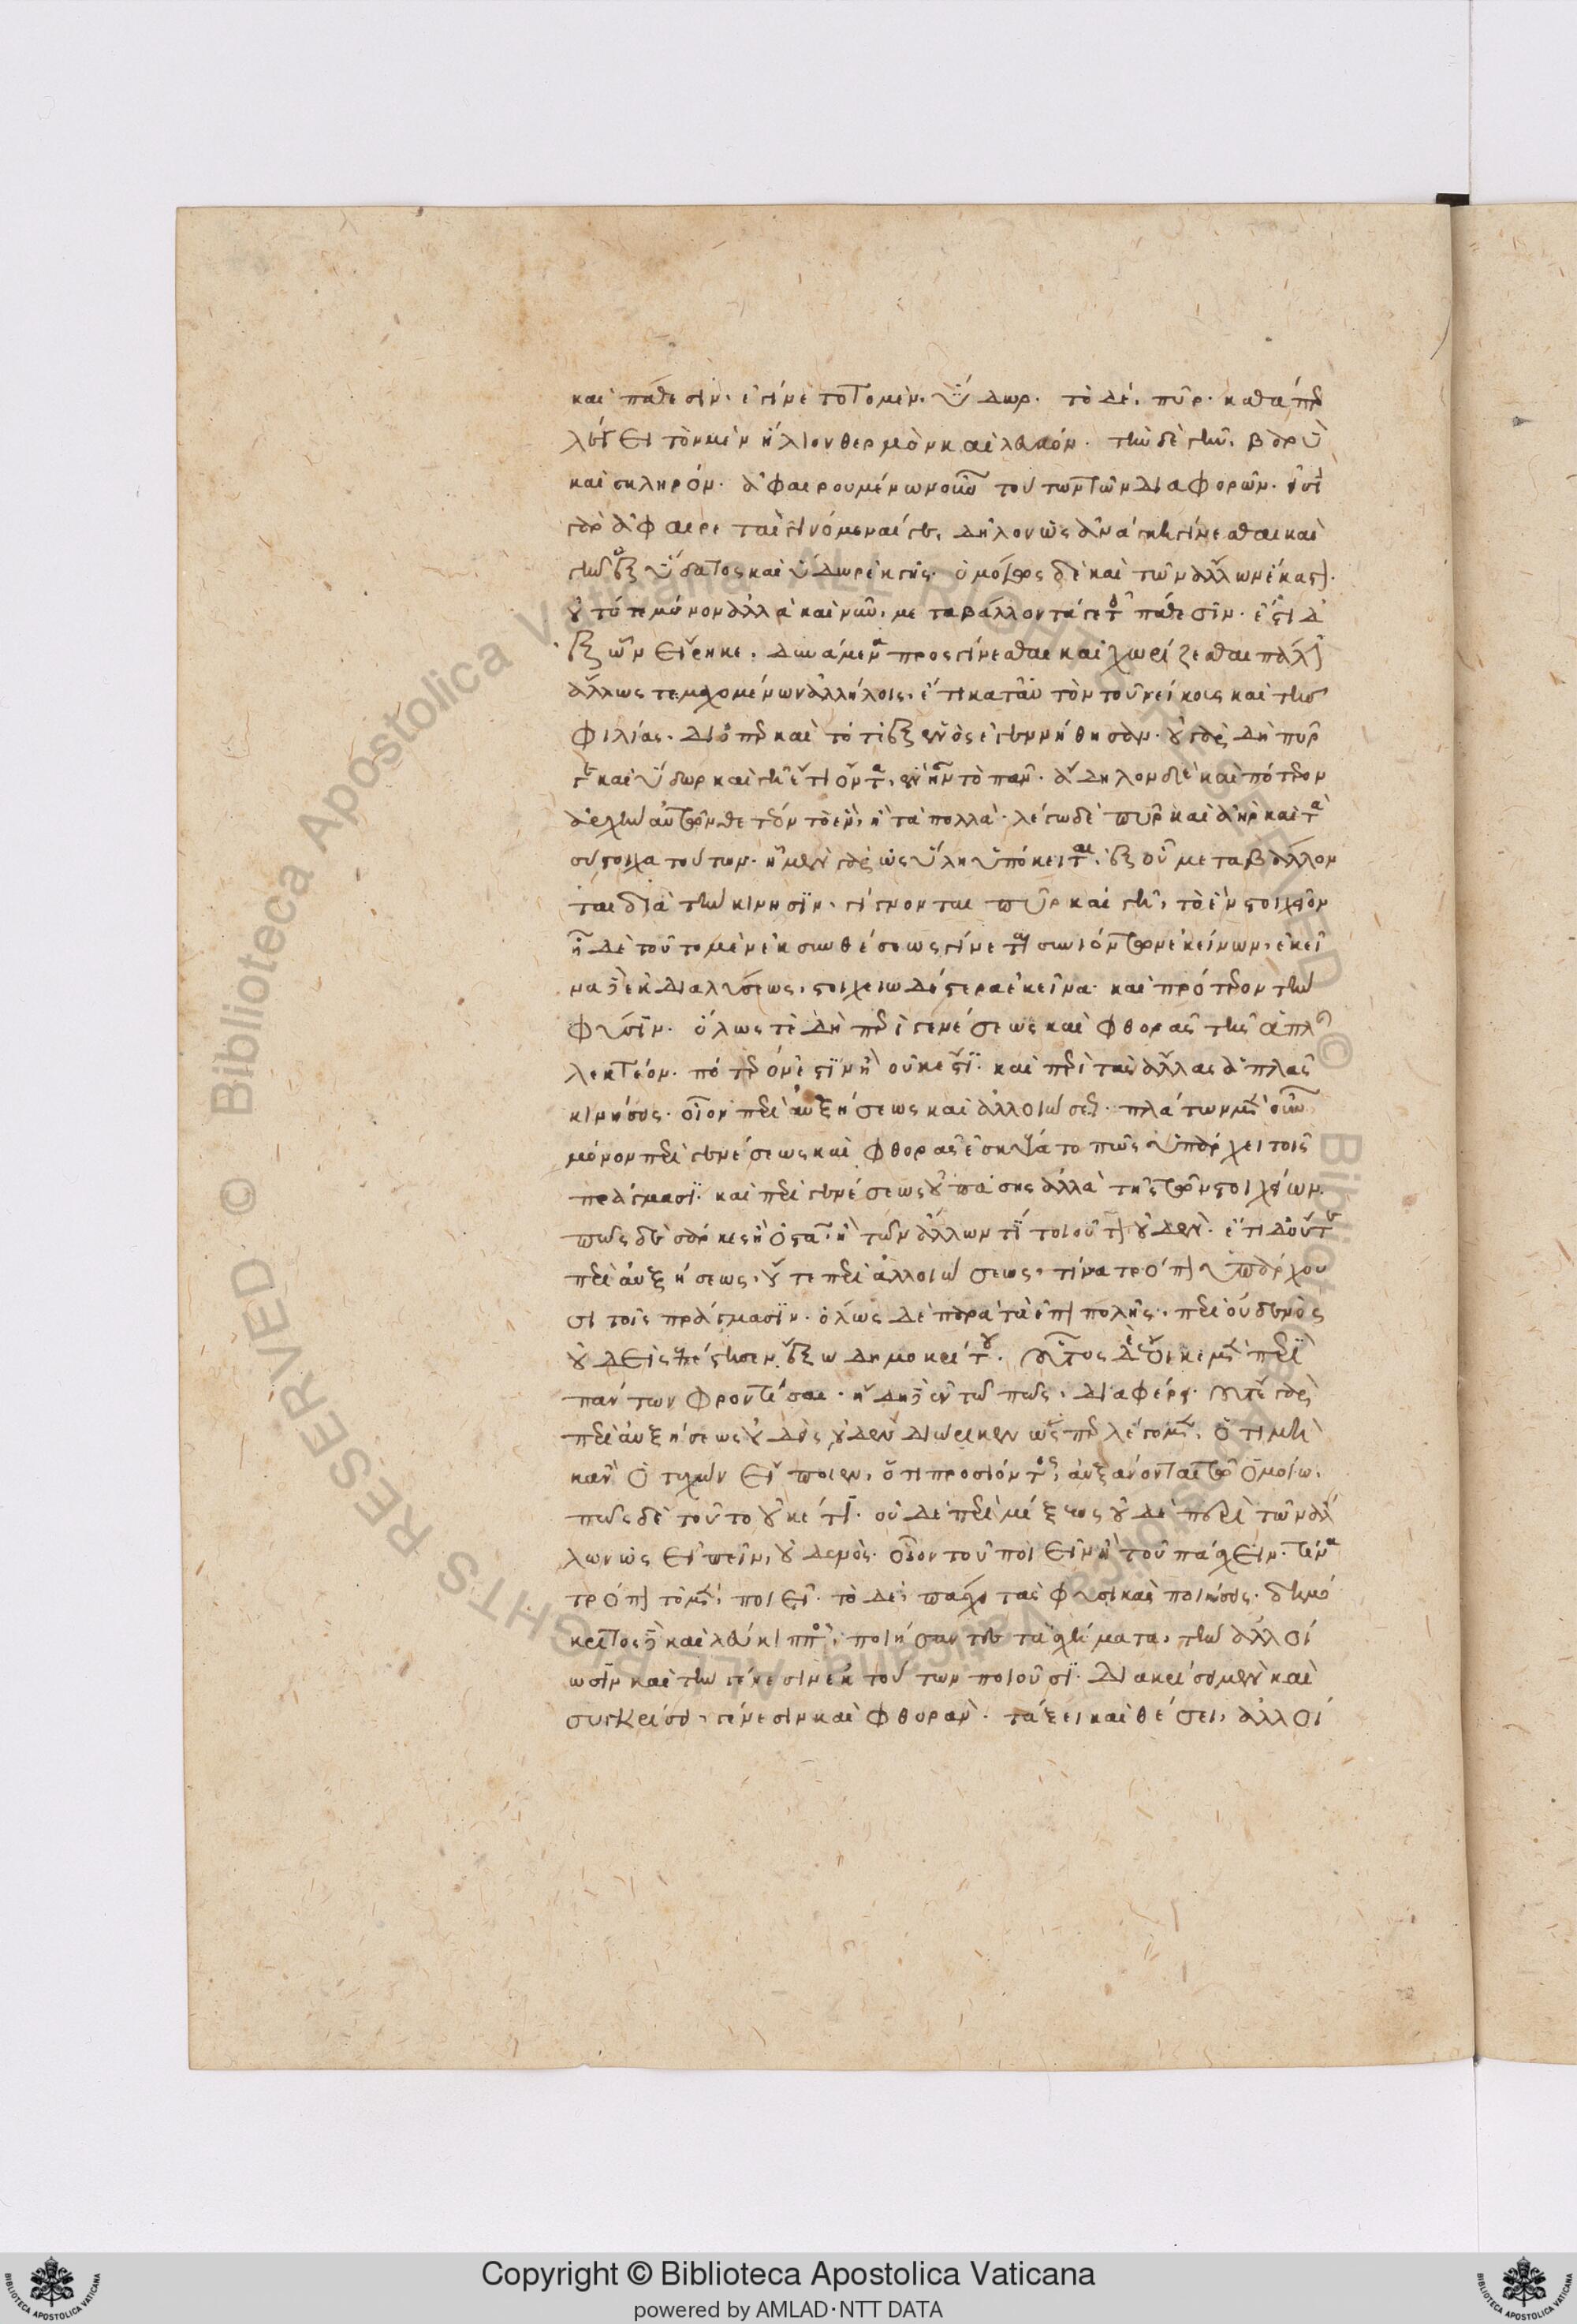 καὶ πάθεσιν. ἐγένετο τὸ μὲν, ὕδωρ. τὸ δὲ, πῦρ. καθάπερ
λέγει τὸν μὲν ἥλιον θερμὸν καὶ λευκόν. τὴν δὲ γῆν, βαρὺ
καὶ σκληρόν. ἀφαιρουμένων οὖν τούτων τῶν διαφορῶν. εἰσὶ
γὰρ ἀφαιρεταὶ γινόμεναί γε, δῆλον ὡς ἀνάγκη γίνεσθαι καὶ
γῆν ἐξ ὕδατος καὶ ὕδωρ ἐκ γῆς. ὁμοίως δὲ καὶ τῶν ἄλλων ἕκαστον.
οὐ τότε μόνον ἀλλὰ καὶ νῦν, μεταβάλλοντά γε τοῖς πάθεσιν. ἔστι δ'
ἐξ ὧν εἴρηκε, δυνάμενα προσγίνεσθαι καὶ χωρίζεσθαι πάλιν
ἄλλως τε μαχομένων ἀλλήλοις, ἔτι κατ' αὐτὸν τοῦ νείκους καὶ τῆς
φιλίας. διόπερ καὶ τότε ἐξ ἑνὸς ἐγεννήθησαν. οὐ γὰρ δὴ πῦρ
γε καὶ ὕδωρ καὶ γῆ ἔτι ὄντα, ἓν ἦν τὸ πᾶν. ἄδηλον δὲ καὶ πότερον
ἀρχὴν αὐτῶν θετέον τὸ ἓν, ἢ τὰ πολλά. λέγω δὲ πῦρ καὶ ἀὴρ καὶ τὰ
σύστοιχα τούτων. ἧ μὲν γὰρ ὡς ὕλη ὑπόκειται, ἐξ οὗ μεταβάλλον
τα διὰ τὴν κίνησιν, γίγνονται πῦρ καὶ γῆ, τὸ ἓν στοιχεῖον
ἧ δὲ τοῦτο μὲν ἐκ συνθέσεως γίνεται συνιόντων ἐκείνων, ἐκεῖ
να δὲ ἐκ διαλύσεως, στοιχειωδέστερα ἐκεῖνα. καὶ πρότερον τὴν
φύσιν. ὅλως τε δὴ περὶ γενέσεως καὶ φθορᾶς τῆς ἁπλῆς
λεκτέον. πότερόν ἐστιν ἢ οὐκ ἔστι. καὶ περὶ τὰς ἄλλας ἁπλᾶς
κινήσεις. οἷον περὶ αὐξήσεως καὶ ἀλλοιώσεως. πλάτων μὲν οὖν
μόνον περὶ γενέσεως καὶ φθορᾶς ἐσκέψατο πῶς ὑπάρχει τοῖς
πράγμασι. καὶ περὶ γενέσεως οὐ πάσης ἀλλὰ τῆς τῶν στοιχείων.
πῶς δὲ σάρκες ἢ ὀστᾶ, ἢ τῶν ἄλλων τι τοιούτων οὐδέν. ἔτι δ' οὔτε
περὶ αὐξήσεως, οὔτε περὶ ἀλλοιώσεως, τίνα τρόπον ὑπάρχου
σι τοῖς πράγμασιν. ὅλως δὲ παρὰ τὰ ἐπιπολῆς, περὶ οὐδενὸς
οὐδεὶς ἐπέστησεν, ἔξω δημοκρίτου. οὗτος δ' ἔοικε μὲν περὶ
πάντων φροντίσαι. ἤδη δὲ ἐν τῷ πῶς, διαφέρει. οὔτε γὰρ
περὶ αὐξήσεως οὐδεὶς οὐδὲν διώρικεν ὥσπερ λέγομεν, ὅτι μὴ
κἂν ὁ τυχὼν εἴποιεν, ὅτι προσιόντος, αὐξάνονται τῷ ὁμοίῳ.
πῶς δὲ τοῦτο οὐκέτι. οὐδὲ περὶ μίξεως οὐδὲ περὶ τῶν ἄλ
λων ὡς εἰπεῖν, οὐδενός. οἷον τοῦ ποιεῖν ἢ τοῦ πάσχειν. τίνα
τρόπον τὸ μὲν, ποιεῖ. τὸ δὲ, πάσχει τὰς φυσικὰς ποιήσεις. δημό
κριτος δὲ καὶ λεύκιππος, ποιήσαντες τὰ σχήματα, τὴν ἀλλοί
ωσιν καὶ τὴν γένεσιν ἐκ τούτων ποιοῦσι. διακρίσει μὲν καὶ
συγκρίσει, γένεσιν καὶ φθοράν. τάξει καὶ θέσει, ἀλλοί
Copyright © Biblioteca Apostolica Vaticana
powered by AMLAD·NTT DATA